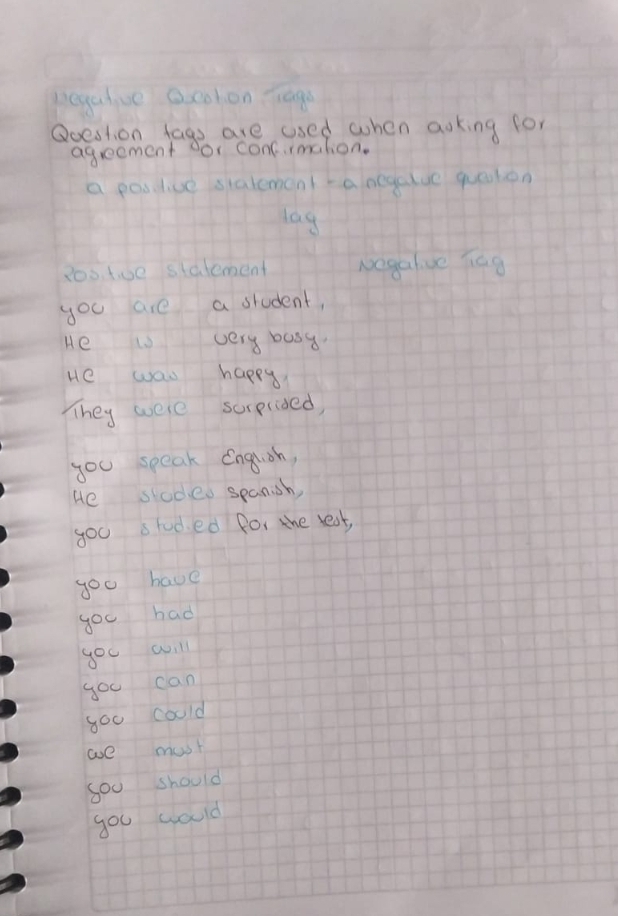 Negative Question Tags
Question tags are used when asking for
agreement or confirmation.
a positive statement - a negative question
tag
Positive statement Negative Tag
you are a student,
He is very busy.
He was happy,
They were surprised,
you speak English,
He studies spanish,
you studied for the test,
you have
you had
you will
you can
you could
we must
you should
you would